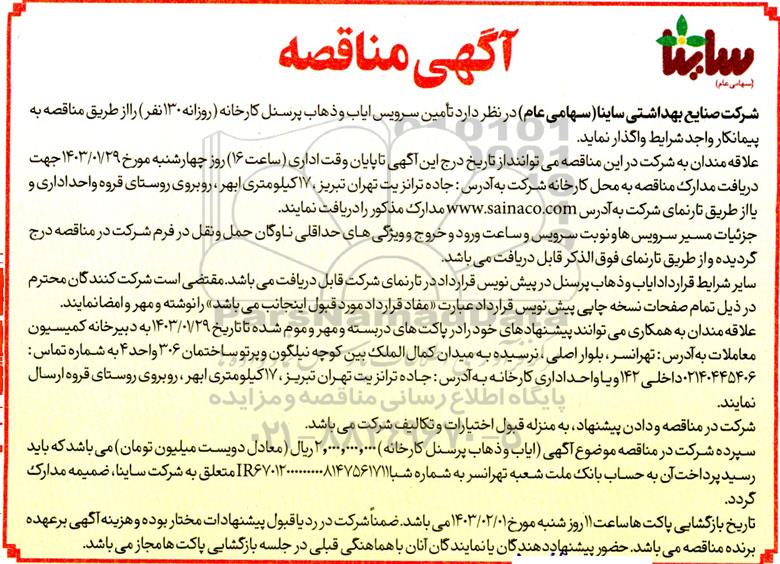 آگهی مناقصه
ساینا
(سهامی عام)
شرکت صنایع بهداشتی ساینا(سهامی عام) در نظر دارد تأمین سرویس ایاب و ذهاب پرسنل کارخانه (روزانه ۱۳۰ نفر) را از طریق مناقصه به
پیمانکار واجد شرایط واگذار نماید.
علاقه مندان به شرکت در این مناقصه می توانند از تاریخ درج این آگهی تا پایان وقت اداری (ساعت ۱۶) روز چهارشنبه مورخ ۱۴۰۳/۰۱/۲۹ جهت
دریافت مدارک مناقصه به محل کارخانه شرکت به آدرس : جاده ترانزیت تهران تبریز ، ۱۷ کیلومتری ابهر ، روبروی روستای قروه واحد اداری و
یا از طریق تارنمای شرکت به آدرس www.sainaco.com مدارک مذکور را دریافت نمایند.
جزئیات مسیر سرویس ها و نوبت سرویس و ساعت ورود و خروج و ویژگی های حداقلی ناوگان حمل و نقل در فرم شرکت در مناقصه درج
گردیده و از طریق تارنمای فوق الذکر قابل دریافت می باشد.
سایر شرایط قرارداد ایاب و ذهاب پرسنل در پیش نویس قرارداد در تارنمای شرکت قابل دریافت می باشد. مقتضی است شرکت کنندگان محترم
در ذیل تمام صفحات نسخه چاپی پیش نویس قرارداد عبارت «مفاد قرارداد مورد قبول اینجانب می باشد» را نوشته و مهر و امضا نمایند.
علاقه مندان به همکاری می توانند پیشنهادهای خود را در پاکت های دربسته و مهر و موم شده تا تاریخ ۱۴۰۳/۰۱/۲۹ به دبیرخانه کمیسیون
معاملات به آدرس : تهرانسر ، بلوار اصلی ، نرسیده به میدان کمال الملک بین کوچه نیلگون و پرتو ساختمان ۳۰۶ واحد ۴ به شماره تماس :
۰۲۱۴۰۴۴۵۴۰۶ داخلی ۱۴۲ و یا واحد اداری کارخانه به آدرس : جاده ترانزیت تهران تبریز ، ۱۷ کیلومتری ابهر ، روبروی روستای قروه ارسال
نمایند.
شرکت در مناقصه و دادن پیشنهاد ، به منزله قبول اختیارات و تکالیف شرکت می باشد.
سپرده شرکت در مناقصه موضوع آگهی (ایاب و ذهاب پرسنل کارخانه) ۲,۰۰۰,۰۰۰,۰۰۰ ریال (معادل دویست میلیون تومان) می باشد که باید
رسید پرداخت آن به حساب بانک ملت شعبه تهرانسر به شماره شبا متعلق به شرکت ساینا ، ضمیمه مدارک
گردد.
تاریخ بازگشایی پاکت ها ساعت ۱۱ روز شنبه مورخ ۱۴۰۳/۰۲/۰۱ می باشد. ضمناً شرکت در رد یا قبول پیشنهادات مختار بوده و هزینه آگهی برعهده
برنده مناقصه می باشد. حضور پیشنهاددهندگان یا نمایندگان آنان با هماهنگی قبلی در جلسه بازگشایی پاکت ها مجاز می باشد.
ParsNamadData
پایگاه اطلاع رسانی مناقصه و مزایده
۰۲۱-۸۸۳۴۹۶۷۰-۵